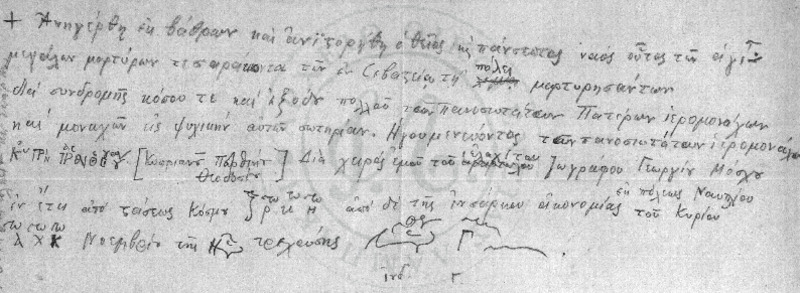 + Ἀνηγέρθη ἐκ βάθρων καὶ ἀνιστορήθη ὁ θεῖος κὲ πάνσεπτος ναὸς οὗτος τῶν ἁγί
μεγάλων μαρτύρων τεσαράκοντα τῶν ἐν Σεβαστείᾳ τῇ πόλει μαρτυρησάντων
διὰ συνδρομῆς κόπου τε καὶ ἐξόδου πολλοῦ τῶν πανοσιοτάτων Πατέρων ἱερομονάχων
καὶ μοναχῶν εἰς ψυχικήν αὐτῶν σωτηρίαν. Ἡγουμενεύοντος τῶν πανοσιοτάτων ἱερομονάχων
[Κυπριανοῦ Παρθενίου Θεοδοσίου] Διὰ χειρὸς ἐμοῦ τοῦ ἐλαχίστου ζωγράφου Γεωργίου Μόσχου
ἐκ πόλεως Ναυπλίου
ἐν ἔτι ἀπὸ κτίσεως Κόσμου ζ ρ κ η ἀπὸ δὲ τῆς ἐνσάρκου οἰκονομίας τοῦ Κυρίου
α χ κ Νοεμβρίου τῆς τρεχούσης Γ
ἰνδ. Γ.